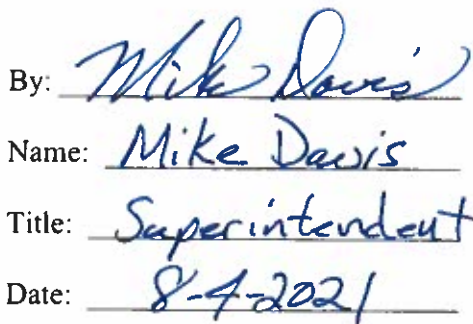 By: Mike Davis
Name: Mike Davis
Title: Superintendent
Date: 8-4-2021